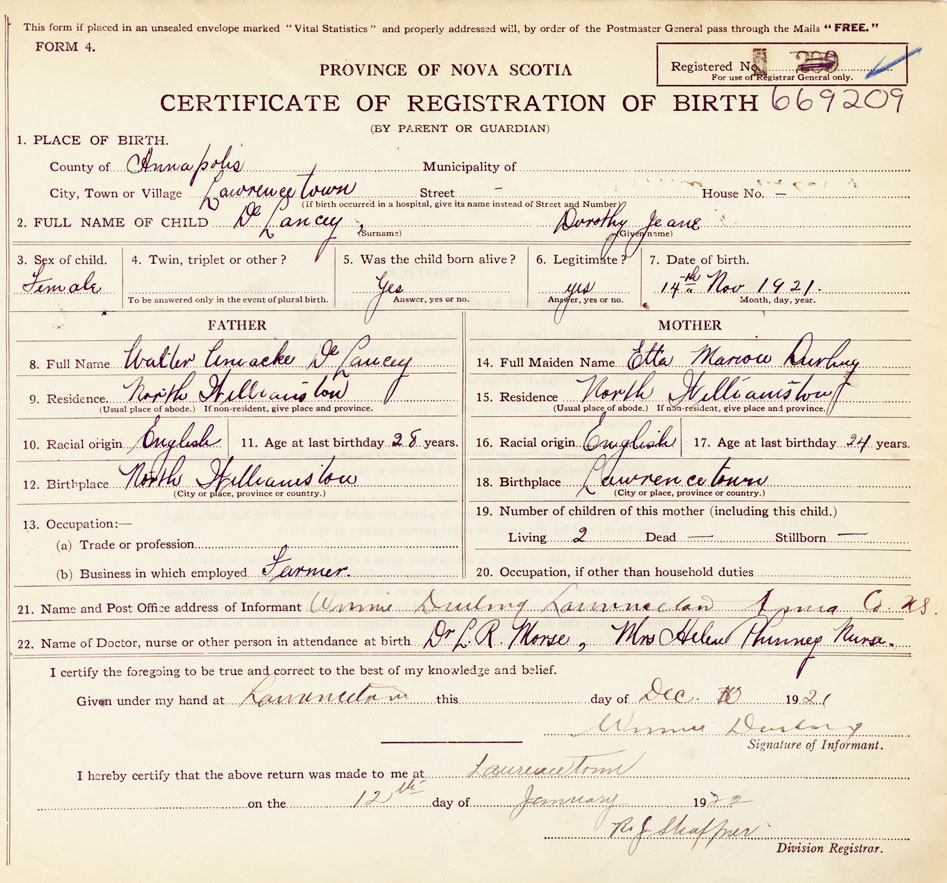 This form if placed in an unsealed envelope marked "Vital Statistics" and properly addressed will, by order of the Postmaster General pass through the Mails "FREE."
FORM 4.
Registered No. 200
For use of Registrar General only.
PROVINCE OF NOVA SCOTIA
CERTIFICATE OF REGISTRATION OF BIRTH 669209
(BY PARENT OR GUARDIAN)
1. PLACE OF BIRTH.
County of Annapolis Municipality of
City, Town or Village Lawrencetown Street - House No. -
(If birth occurred in a hospital, give its name instead of Street and Number)
2. FULL NAME OF CHILD De Lancey, Dorothy Jeane
(Surname) (Given name)
3. Sex of child. Female
4. Twin, triplet or other ?
To be answered only in the event of plural birth.
5. Was the child born alive ? Yes
Answer, yes or no.
6. Legitimate ? yes
Answer, yes or no.
7. Date of birth. 14th Nov 1921.
Month, day, year.
FATHER
8. Full Name Walter De Lancey
9. Residence. North Williamston
(Usual place of abode.) If non-resident, give place and province.
10. Racial origin English 11. Age at last birthday 28 years.
12. Birthplace North Williamston
(City or place, province or country.)
13. Occupation:—
(a) Trade or profession
(b) Business in which employed Farmer.
MOTHER
14. Full Maiden Name Etta Marion Durling
15. Residence North Williamston
(Usual place of abode.) If non-resident, give place and province.
16. Racial origin English 17. Age at last birthday 24 years.
18. Birthplace Lawrencetown
(City or place, province or country.)
19. Number of children of this mother (including this child.)
Living 2 Dead — Stillborn —
20. Occupation, if other than household duties
21. Name and Post Office address of Informant Winnie Durling Lawrencetown Anna Co. N.S.
22. Name of Doctor, nurse or other person in attendance at birth Dr L. R. Morse, Mrs Helen Phinney Nurse.
I certify the foregoing to be true and correct to the best of my knowledge and belief.
Given under my hand at Lawrencetown this day of Dec. 10 1921
Winnie Durling
Signature of Informant.
I hereby certify that the above return was made to me at Lawrencetown
on the 12th day of January 1922
R. J. Shaffner
Division Registrar.